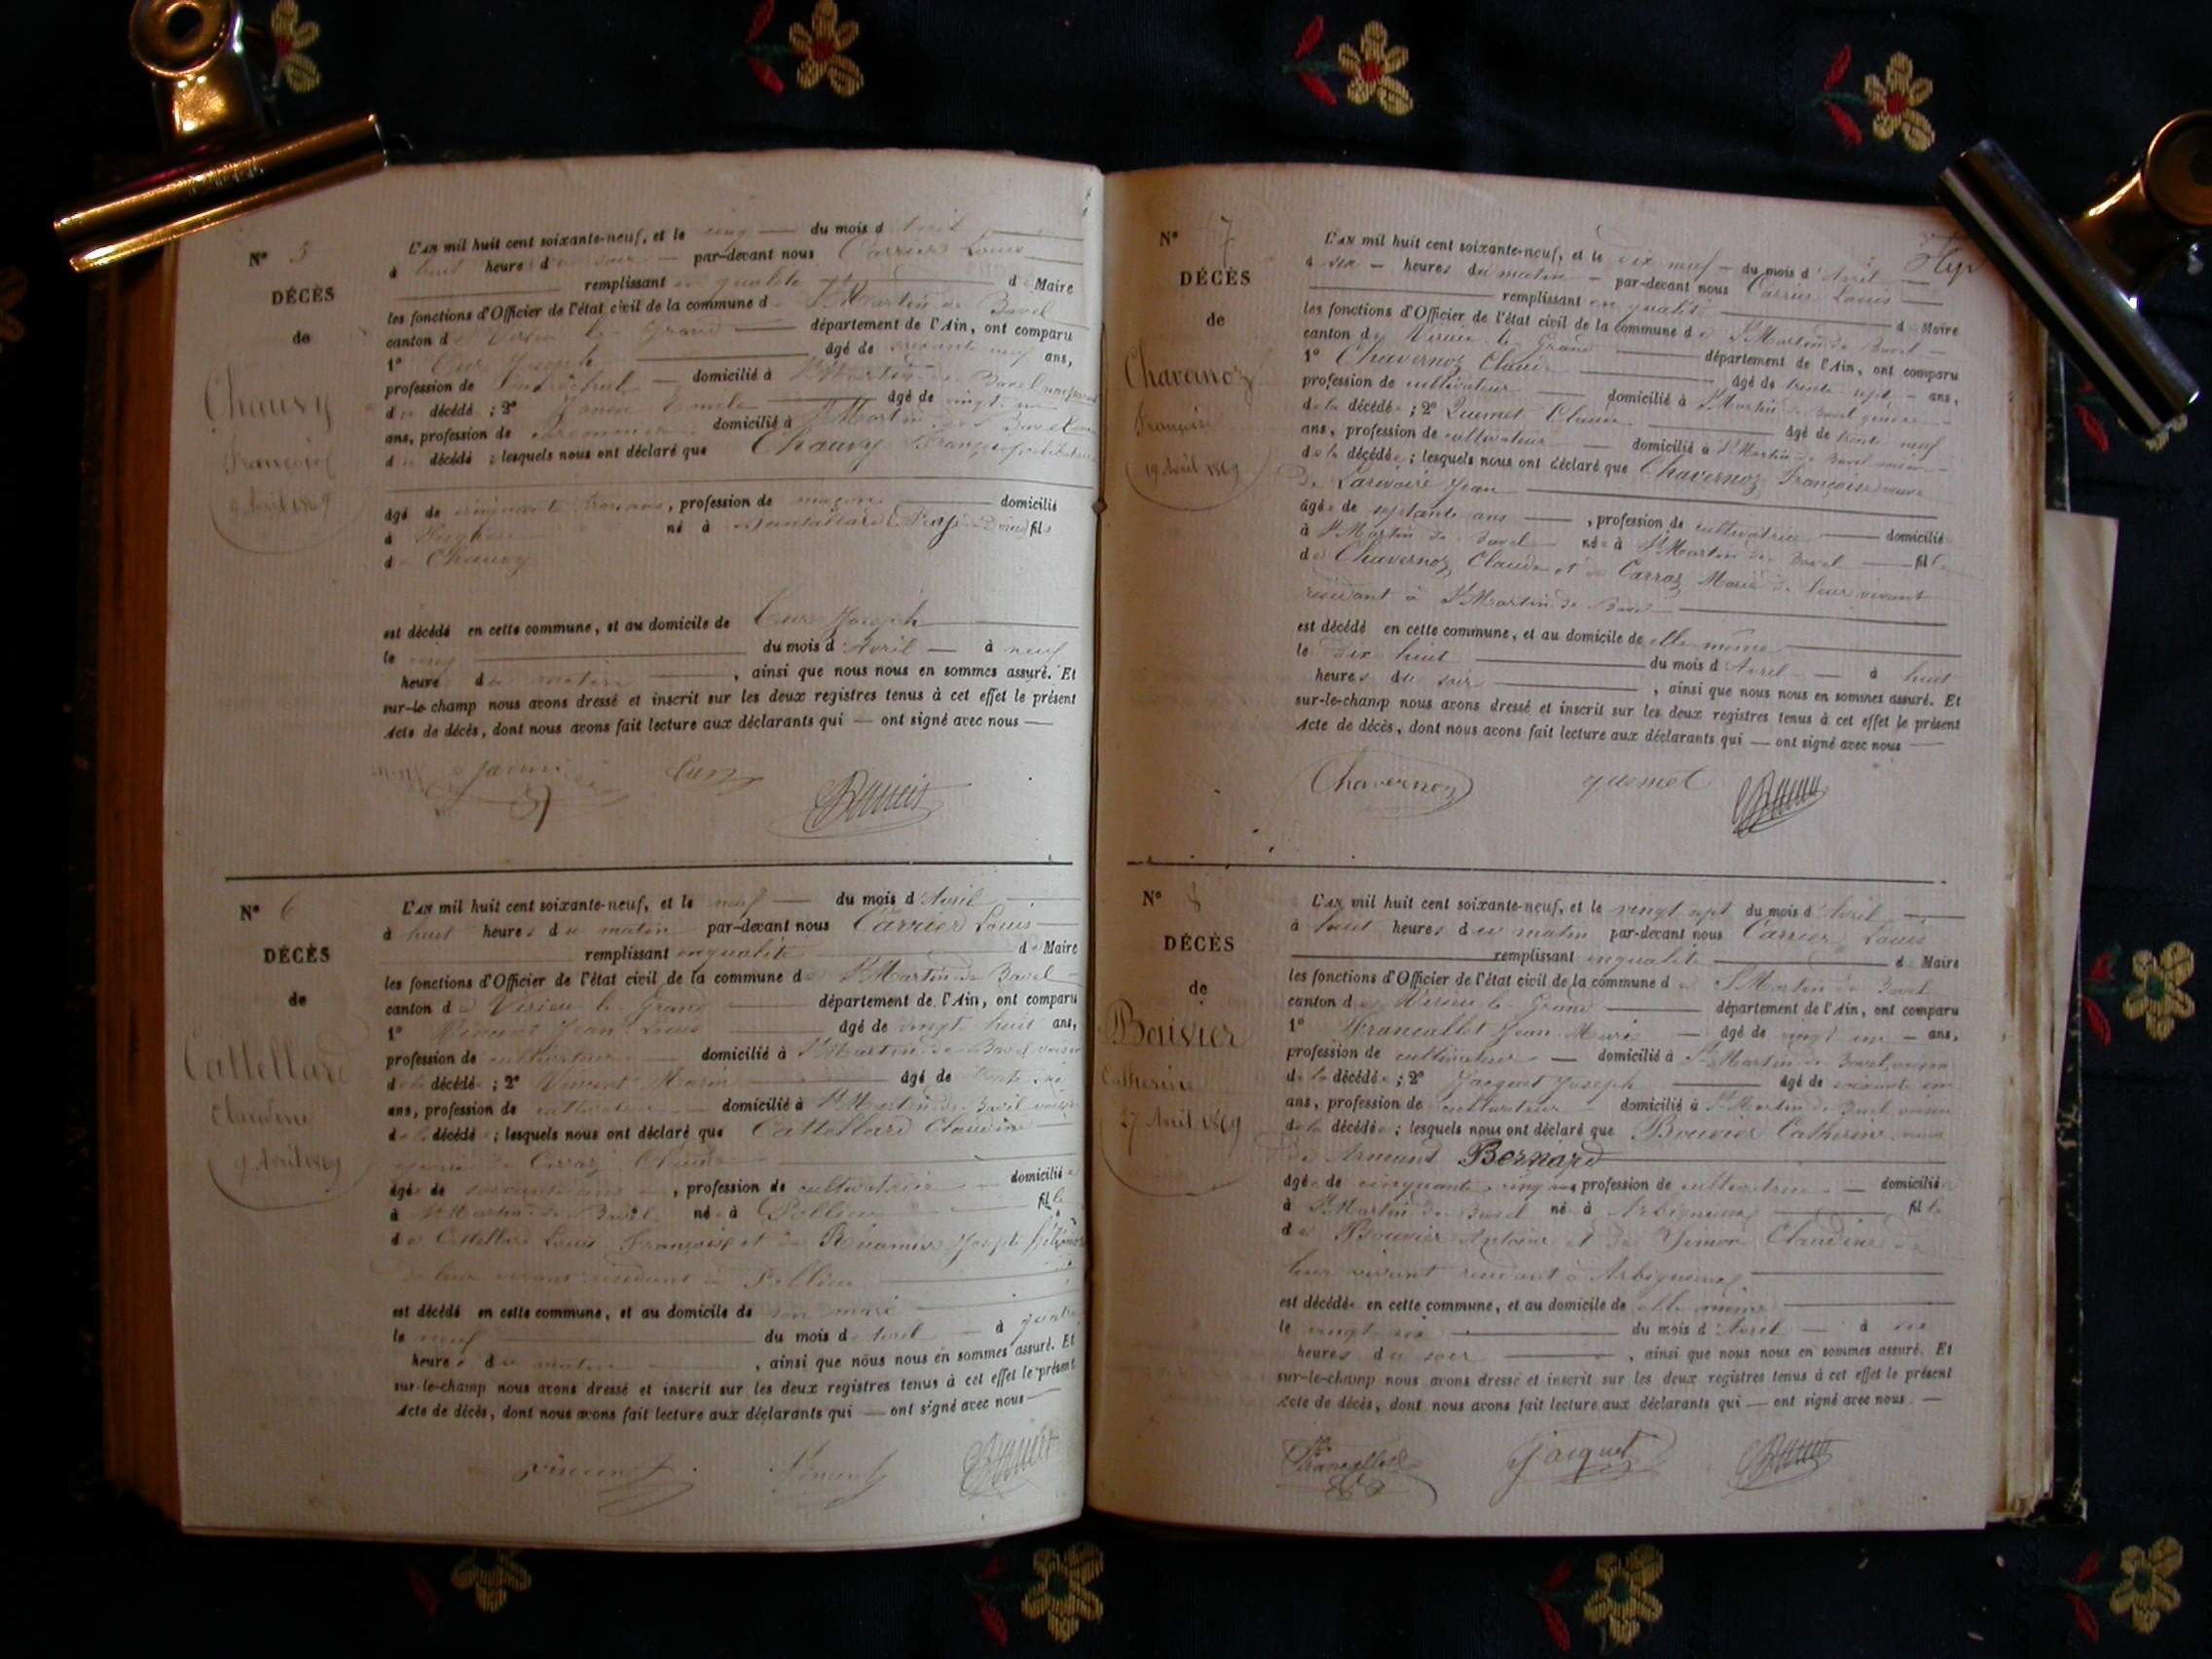 N° 5
DÉCÈS
de
Chauvy
François
9 Avril 1869
L'AN mil huit cent soixante-neuf, et le cinq du mois d'Avril
à huit heures du soir par-devant nous Carrier Louis
remplissant en qualité de Maire
les fonctions d'Officier de l'état civil de la commune de St Martin de Bavel
canton de Virieu le Grand département de l'Ain, ont comparu
1° Cur Joseph âgé de soixante neuf ans,
profession de domicilié à St Martin de Bavel
du décédé ; 2° Janin Emile âgé de vingt
ans, profession de domicilié à St Martin de Bavel
du décédé ; lesquels nous ont déclaré que Chauvy François
âgé de cinquante trois ans, profession de maçon domicilié
à né à fils
de Chauvy
est décédé en cette commune, et au domicile de Cur Joseph
le cinq du mois d'Avril à neuf
heures du matin, ainsi que nous nous en sommes assuré. Et
sur-le-champ nous avons dressé et inscrit sur les deux registres tenus à cet effet le présent
Acte de décès, dont nous avons fait lecture aux déclarants qui ont signé avec nous
Janin Cur
N° 6
DÉCÈS
de
Cattellard
Claudine
9 Avril 1869
L'AN mil huit cent soixante-neuf, et le neuf du mois d'Avril
à huit heures du matin par-devant nous Carrier Louis
remplissant en qualité de Maire
les fonctions d'Officier de l'état civil de la commune de St Martin de Bavel
canton de Virieu le Grand département de l'Ain, ont comparu
1° Vincent Jean Louis âgé de vingt huit ans,
profession de cultivateur domicilié à St Martin de Bavel voisin
de la décédée ; 2° Vincent Marin âgé de trente
ans, profession de cultivateur domicilié à St Martin de Bavel voisin
de la décédée ; lesquels nous ont déclaré que Cattellard Claudine
de Carraz Claude
âgée de soixante ans, profession de cultivatrice domiciliée
à St Martin de Bavel née à Pollieu fille
de Cattellard Louis François et de Récamier Josephte
de leur vivant résidant à Pollieu
est décédé en cette commune, et au domicile de son mari
le neuf du mois d'Avril à quatre
heures du matin, ainsi que nous nous en sommes assuré. Et
sur-le-champ nous avons dressé et inscrit sur les deux registres tenus à cet effet le présent
Acte de décès, dont nous avons fait lecture aux déclarants qui ont signé avec nous
Vincent Vincent
N° 7
DÉCÈS
de
Chavanoz
Françoise
19 Avril 1869
L'AN mil huit cent soixante-neuf, et le dix neuf du mois d'Avril
à six heures du matin par-devant nous Carrier Louis
remplissant en qualité de Maire
les fonctions d'Officier de l'état civil de la commune de St Martin de Bavel
canton de Virieu le Grand département de l'Ain, ont comparu
1° Chavernoz Claude âgé de trente sept ans,
profession de cultivateur domicilié à St Martin de Bavel
de la décédée ; 2° Quemet Claude âgé de trente neuf
ans, profession de cultivateur domicilié à St Martin de Bavel voisin
de la décédée ; lesquels nous ont déclaré que Chavernoz Françoise veuve
De Larivoire Jean
âgée de septante ans, profession de cultivatrice domiciliée
à St Martin de Bavel née à St Martin de Bavel fille
de Chavernoz Claude et de Carraz Marie de leur vivant
résidant à St Martin de Bavel
est décédé en cette commune, et au domicile de elle même
le dix huit du mois d'Avril à huit
heures du soir, ainsi que nous nous en sommes assuré. Et
sur-le-champ nous avons dressé et inscrit sur les deux registres tenus à cet effet le présent
Acte de décès, dont nous avons fait lecture aux déclarants qui ont signé avec nous
Chavernoz quemet
N° 8
DÉCÈS
de
Bouvier
Catherine
27 Avril 1869
L'AN mil huit cent soixante-neuf, et le vingt sept du mois d'Avril
à huit heures du matin par-devant nous Carrier Louis
remplissant en qualité de Maire
les fonctions d'Officier de l'état civil de la commune de St Martin de Bavel
canton de Virieu le Grand département de l'Ain, ont comparu
1° Francallet Jean Marie âgé de vingt un ans,
profession de cultivateur domicilié à St Martin de Bavel voisin
de la décédée ; 2° Jacquet Joseph âgé de soixante
ans, profession de cultivateur domicilié à St Martin de Bavel voisin
de la décédée ; lesquels nous ont déclaré que Bouvier Catherine veuve
de Armant Bernard
âgée de cinquante cinq ans, profession de cultivatrice domiciliée
à St Martin de Bavel né à Arbignieu fille
de Bouvier Antoine et de Claudine de
leur vivant résidant à Arbignieu
est décédée en cette commune, et au domicile de elle même
le vingt six du mois d'Avril à six
heures du soir, ainsi que nous nous en sommes assuré. Et
sur-le-champ nous avons dressé et inscrit sur les deux registres tenus à cet effet le présent
Acte de décès, dont nous avons fait lecture aux déclarants qui ont signé avec nous
Francallet Jacquet